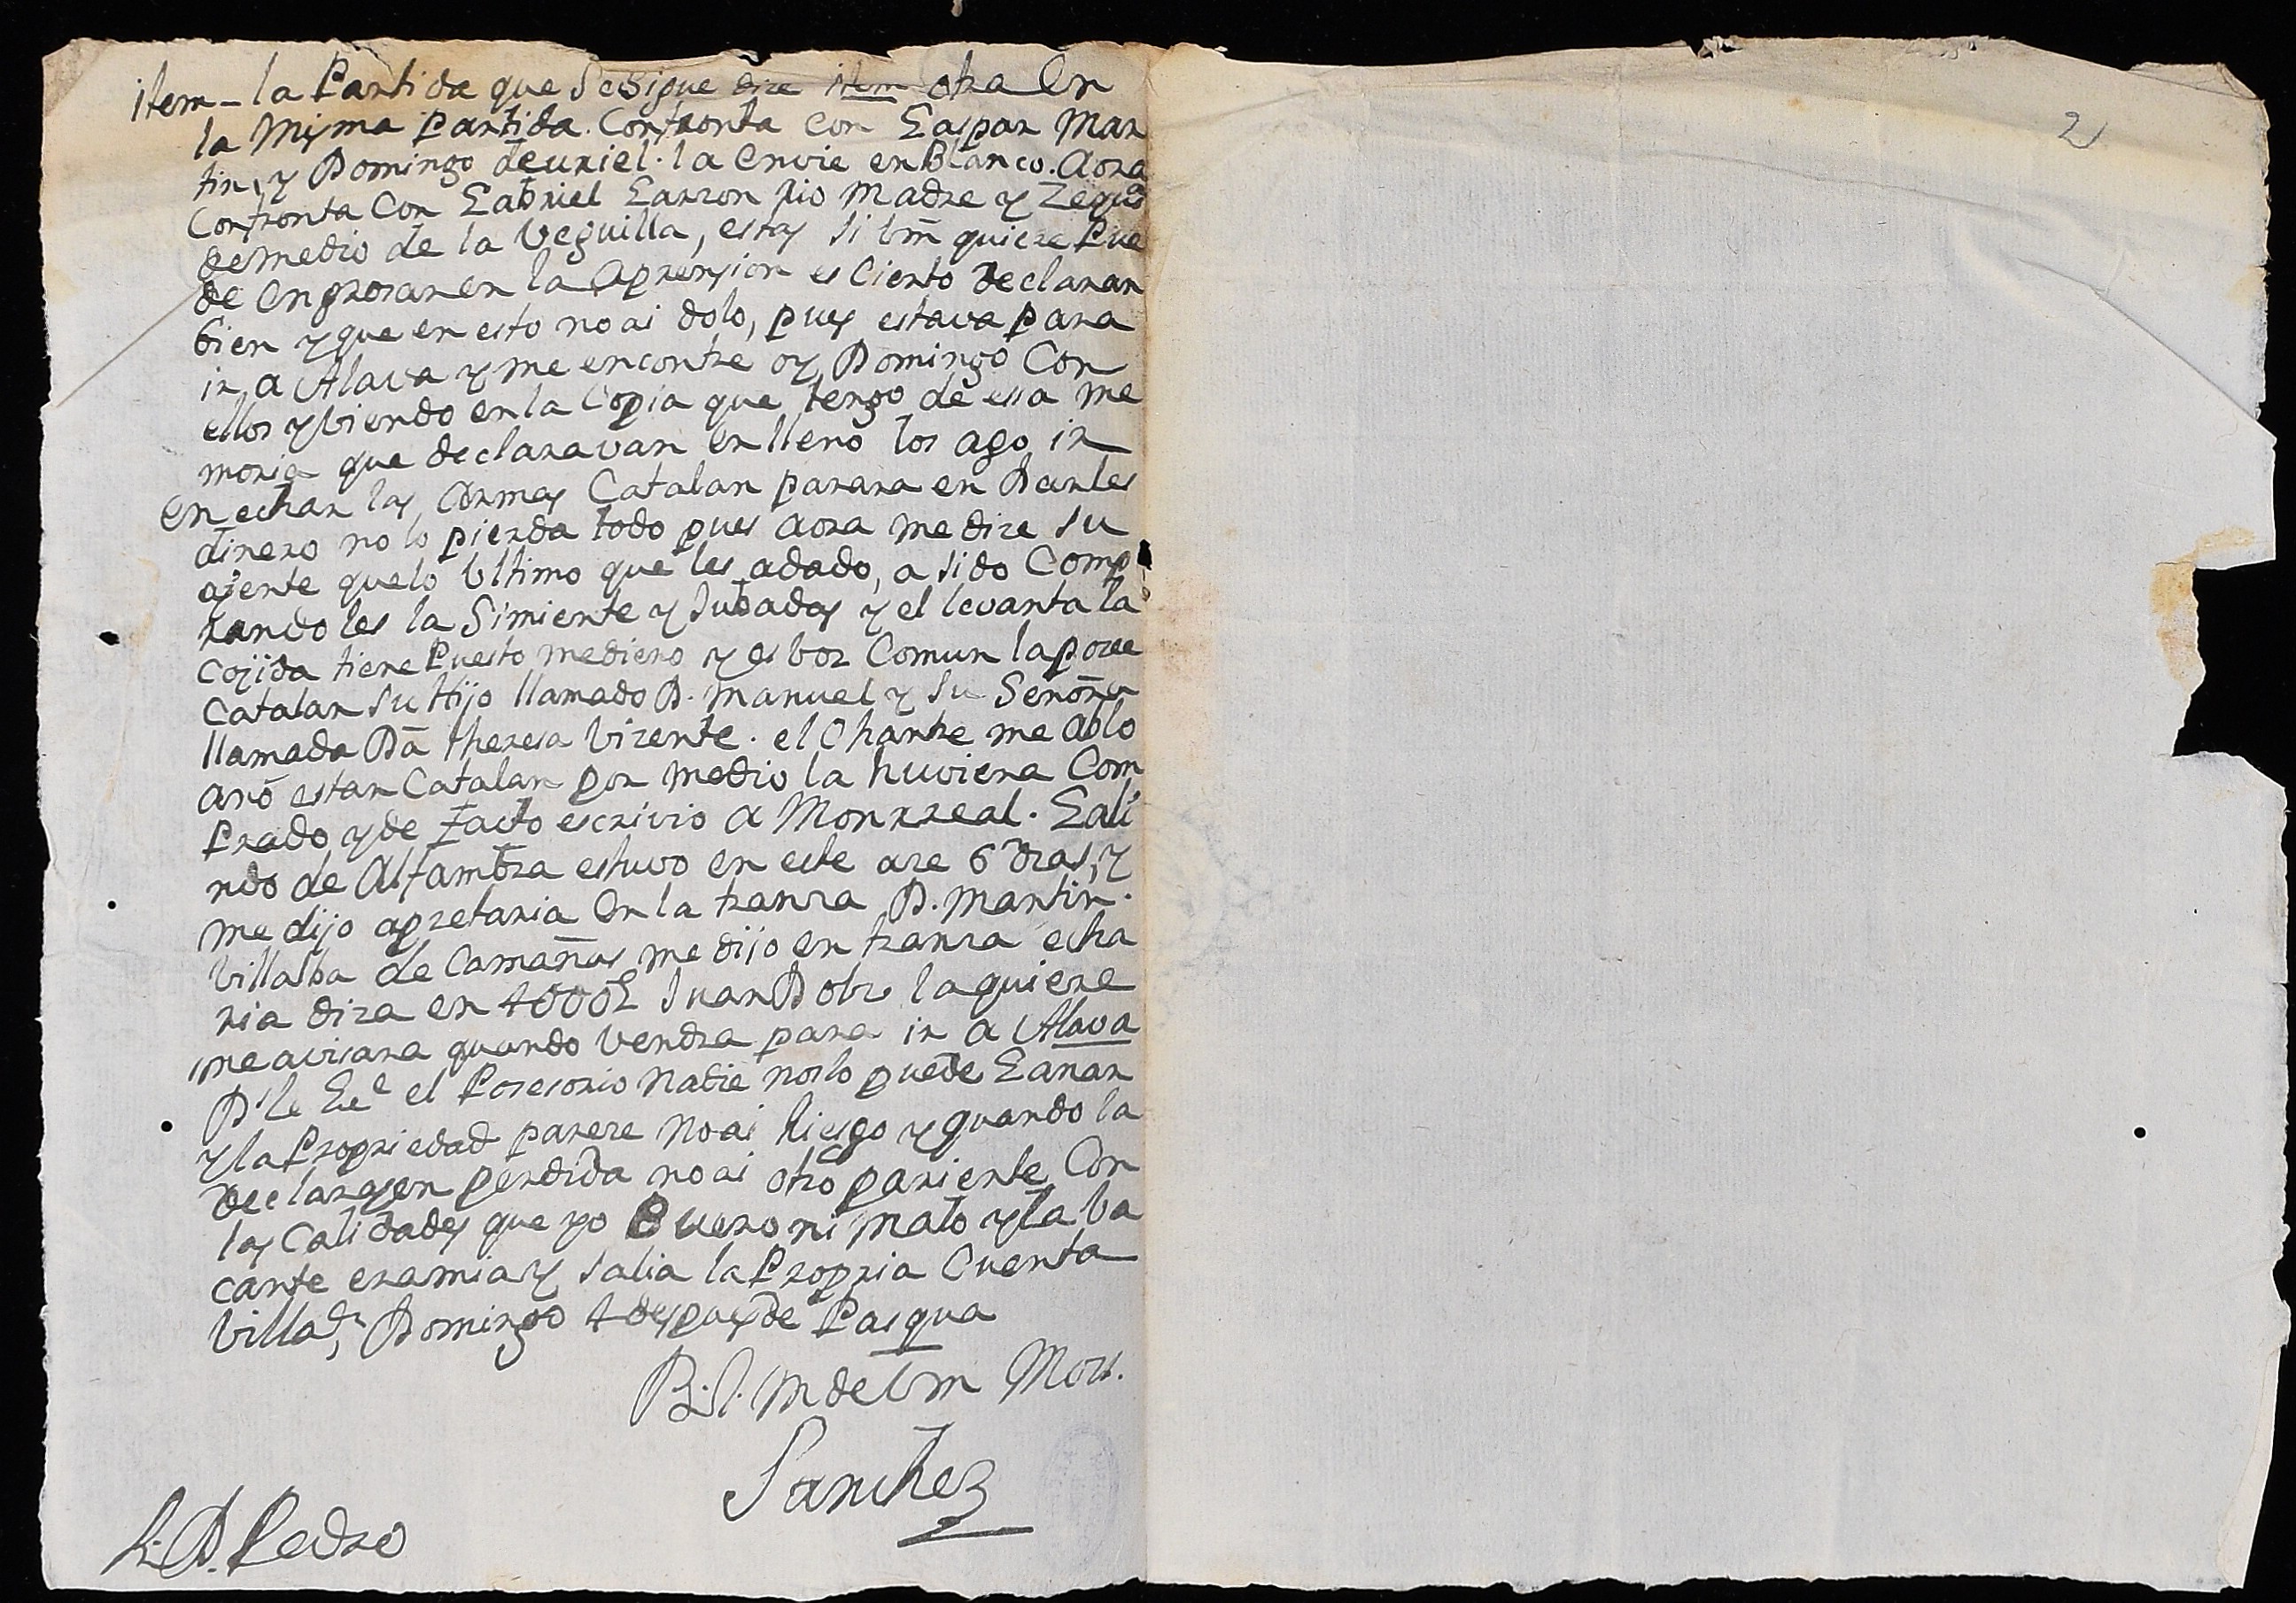 item - la Partida que se sigue dize item otra en
la misma partida. Confronta con Gaspar Mar
tin, y Domingo teuriel. la envie en Blanco. aora
Confronta con Gabriel Garzon rio Madre y Zequia
de medio de la Veguilla, estas si Vm quiere Pue
de engrosar en la aprension es Cierto declararan
bien y que en esto no ai dolo, pues estava para
ir a Alava y me encontre oy Domingo Con
ellos y viendo en la Copia que tengo de essa me
moria que declaravan en lleno los ago ir
en echar las Armas Catalan parara en Darles
dinero no lo pierda todo pues aora me dize su
ajente que lo Ultimo que les a dado, a sido Comp
rando les la Simiente y Jubadas y el levanta la
Cojida tiene Puesto mediero y es voz Comun la posee
Catalan su Hijo llamado D. Manuel y su Señora
llamada Dā theresa Vizente. el Chantre me ablo
a nō estar Catalan por medio la huviera Com
Prado, y de facto escrivio a Monrreal. Gali
ndo de Alfambra estuvo en este aze 6 dias, y
me dijo apretaria en la tranza D. Martin.
Villalba de Camañas me dijo en tranza echa
ria diza en 4000L Juan Dobr la quiere
me avisara quando vendra para ir a Alava
D le Gue el Posesorio Nadie nos lo puede Ganar
y la Propriedad pareze no ai riesgo y quando la
declarasen perdida no ai otro pariente Con
las Calidades que yo Bueno ni malo y la va
cante era mia y salia la Propria Cuenta
Villa Domingo 4 despues de Pasqua
B. S. M de Vm Mos.
Sanchez
S. D. Pedro
2